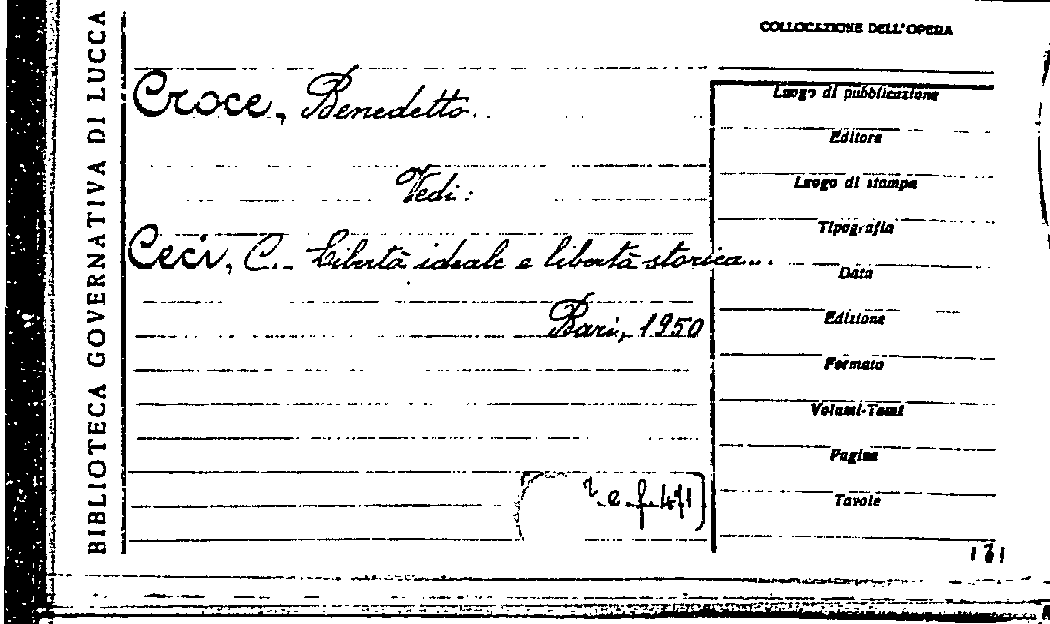 BIBLIOTECA GOVERNATIVA DI LUCCA
COLLOCAZIONE DELL'OPERA
Croce, Benedetto.
Vedi:
Ceci, C. Libertà ideale e libertà storica...
Bari, 1950
Luogo di pubblicazione
Editore
Luogo di stampa
Tipografia
Data
Edizione
Formato
Volumi-Tomi
Pagine
Tavole